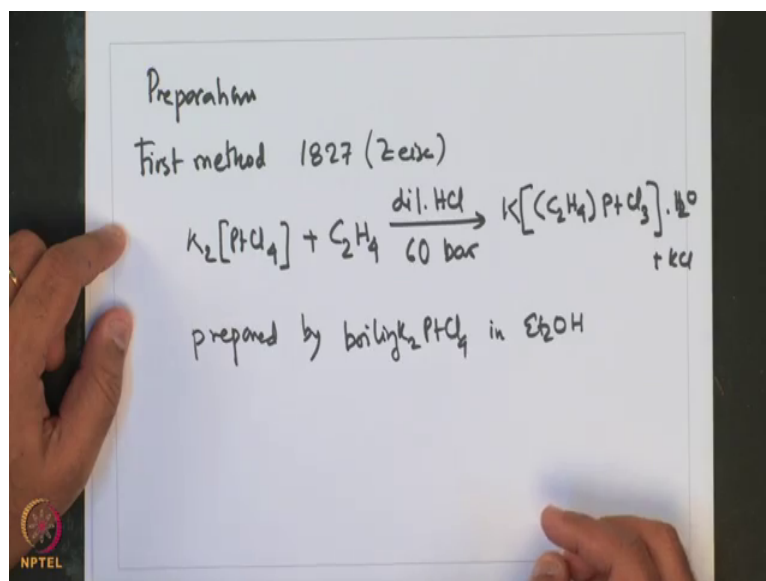 Preparation
First method 1827 (Zeise)
K₂[PtCl₄] + C₂H₄ dil. HCl 60 bar → K[(C₂H₄)PtCl₃].H₂O
+ KCl
prepared by boiling K₂PtCl₄ in Et₂OH
NPTEL